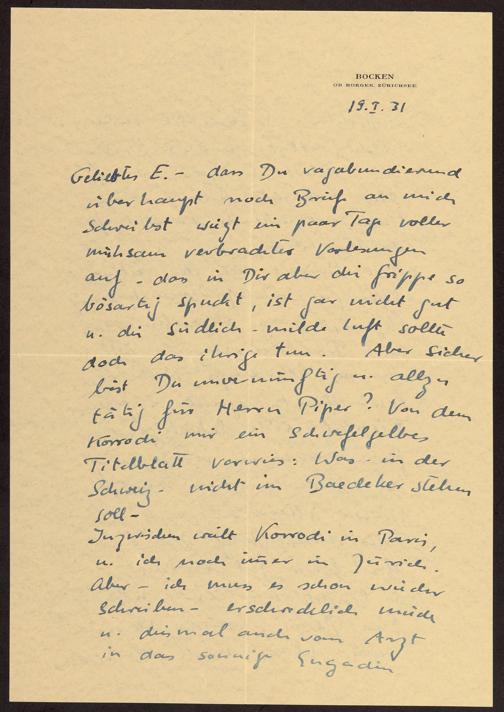 BOCKEN
OB HORGEN, ZÜRICHSEE
19.I.31
Geliebtes E. - dass Du vagabundierend
überhaupt noch Briefe an mich
schreibst wiegt ein paar Tage voller
mühsam verbrachter Vorlesungen
auf - dass in Dir aber die Grippe so
bösartig spuckt, ist gar nicht gut
u. die südlich-milde Luft sollte
doch das ihrige tun. Aber sicher
bist Du unvernünftig u. allzu
tätig für Herrn Piper? Von dem
Korrodi mir ein schwefelgelbes
Titelblatt vorwies: Was - in der
Schweiz - nicht im Baedeker stehen
soll -
Inzwischen weilt Korrodi in Paris,
u. ich noch immer in Zürich.
Aber - ich muss es schon wieder
schreiben - erschrecklich müde
u. diesmal auch vom Arzt
in das sonnige Engadin